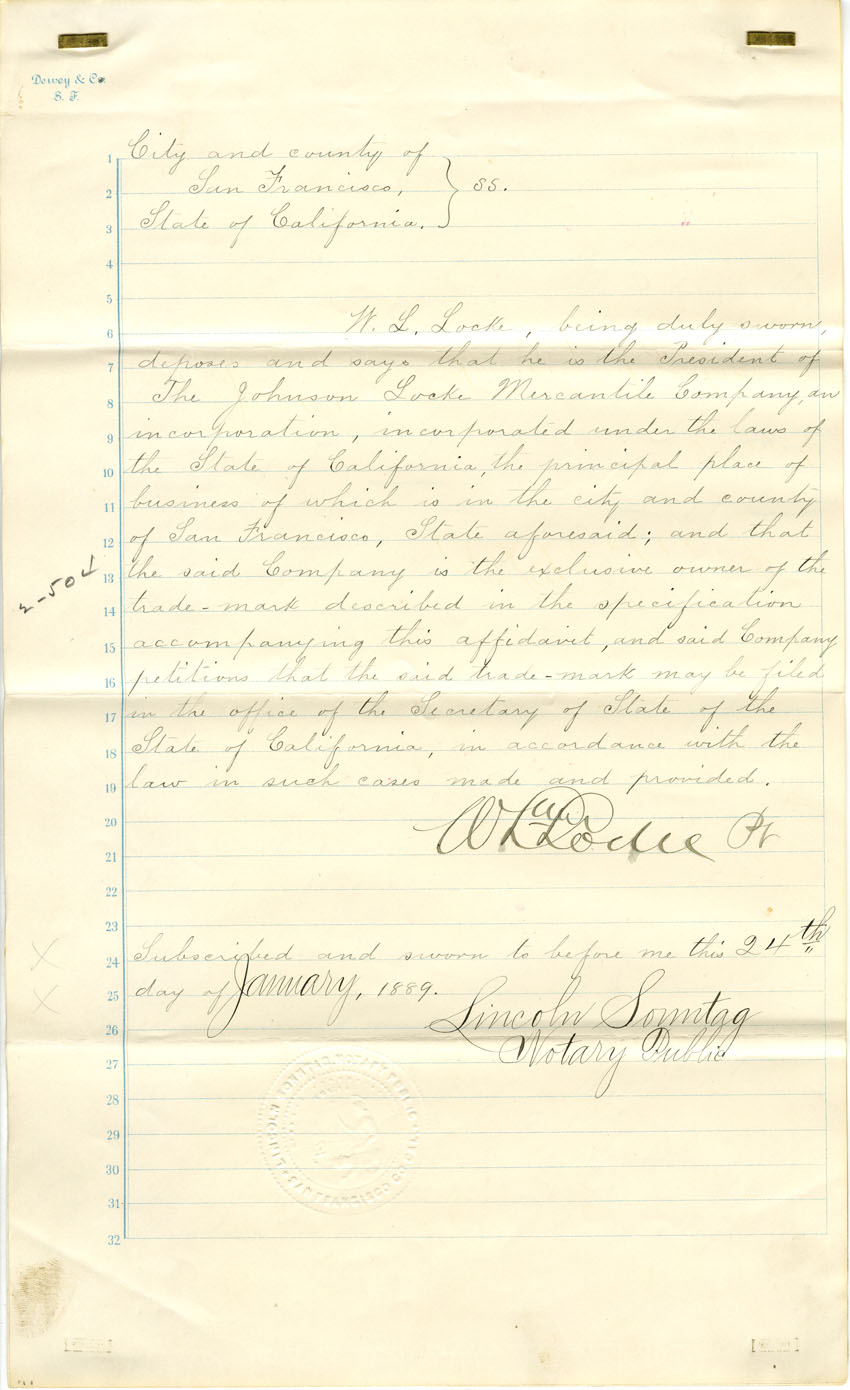 Dewey & Co.
S. F.
1 City and county of
2 San Francisco, } ss.
3 State of California.
4
5
6 W. L. Locke, being duly sworn,
7 deposes and says that he is the President of
8 The Johnson Locke Mercantile Company, an
9 incorporation, incorporated under the laws of
10 the State of California, the principal place of
11 business of which is in the city and county
12 of San Francisco, State aforesaid; and that
13 the said Company is the exclusive owner of the
14 trade-mark described in the specification
15 accompanying this affidavit, and said Company
16 petitions that the said trade-mark may be filed
17 in the office of the Secretary of State of the
18 State of California, in accordance with the
19 law in such cases made and provided.
20
21 Locke
22
23
24 Subscribed and sworn to before me this 24th
25 day of January, 1889.
26 Lincoln Sonntag
27 Notary Public
28
29
30
31
32